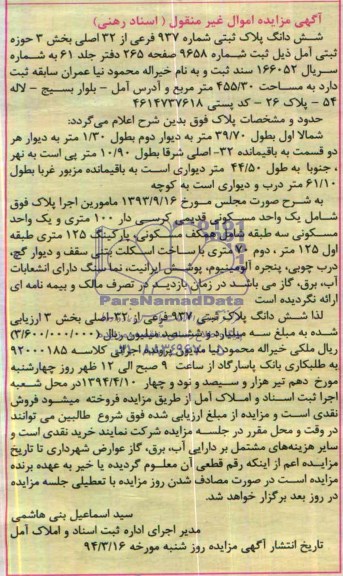 آگهی مزایده اموال غیر منقول ( اسناد رهنی)
شش دانگ پلاک ثبتی شماره ۹۳۷ فرعی از ۳۲ اصلی بخش ۳ حوزه
ثبتی آمل ذیل ثبت شماره ۹۶۵۸ صفحه ۲۶۵ دفتر جلد ۶۱ به شماره
سریال ۱۶۶۰۵۲ سند ثبت و به نام خیراله محمود نیا عمران سابقه ثبت
دارد به مساحت ۴۵۵/۳۰ متر مربع و آدرس آمل - بلوار بسیج - لاله
۵۴ - پلاک ۲۶ - کد پستی ۴۶۱۴۷۳۷۶۱۸
حدود و مشخصات پلاک فوق بدین شرح اعلام می‌گردد:
شمالا اول بطول ۳۹/۷۰ متر به دیوار دوم بطول ۱/۳۰ متر به دیوار هر
دو قسمت به باقیمانده ۳۲- اصلی شرقا بطول ۱۰/۹۰ متر پی است به نهر
، جنوبا به طول ۴۴/۵۰ متر دیواری است به باقیمانده مزبور غربا بطول
۶۱/۱۰ متر درب و دیواری است به کوچه
به شرح صورت مجلس مورخ ۱۳۹۳/۹/۱۶ مامورین اجرا پلاک فوق
شامل یک واحد مسکونی قدیمی کرسی دار ۱۰۰ متری و یک واحد
مسکونی سه طبقه شامل همکف مسکونی، پارکینگ ۱۲۵ متری طبقه
اول ۱۲۵ متر ، دوم ۷۰ متری با ساخت اسکلت بتنی سقف و دیوار گچ،
درب چوبی، پنجره آلومینیوم، پوشش ایرانیت، نما سنگ دارای انشعابات
آب، برق، گاز می باشد در زمان بازدید در تصرف مالک و بیمه نامه ای
ارائه نگردیده است
لذا شش دانگ پلاک ثبتی ۹۳۷ فرعی از ۳۲- اصلی بخش ۳ ارزیابی
شده به مبلغ سه میلیارد و ششصد میلیون ریال (۳/۶۰۰/۰۰۰/۰۰۰)
ریال ملکی خیراله محمودنیا مدیون پرونده اجرائی کلاسه ۹۲۰۰۰۱۸۵
به طلبکاری بانک پاسارگاد از ساعت ۹ صبح الی ۱۲ ظهر روز چهارشنبه
مورخ دهم تیر هزار و سیصد و نود و چهار ۱۳۹۴/۴/۱۰ در محل شعبه
اجرا ثبت اسناد و املاک آمل از طریق مزایده فروخته میشود فروش
نقدی است و مزایده از مبلغ ارزیابی شده فوق شروع طالبین می توانند
در وقت و محل مقرر در جلسه مزایده شرکت نمایند خرید نقدی است و
سایر هزینه‌های مشتمل بر دارایی آب، برق، گاز عوارض شهرداری تا تاریخ
مزایده اعم از اینکه رقم قطعی آن معلوم گردیده یا خیر به عهده برنده
مزایده است در صورت مصادف شدن روز مزایده با تعطیلی جلسه مزایده
در روز بعد برگزار خواهد شد.
سید اسماعیل بنی هاشمی
مدیر اجرای اداره ثبت اسناد و املاک آمل
تاریخ انتشار آگهی مزایده روز شنبه مورخه ۹۴/۳/۱۶
ParsNamadData